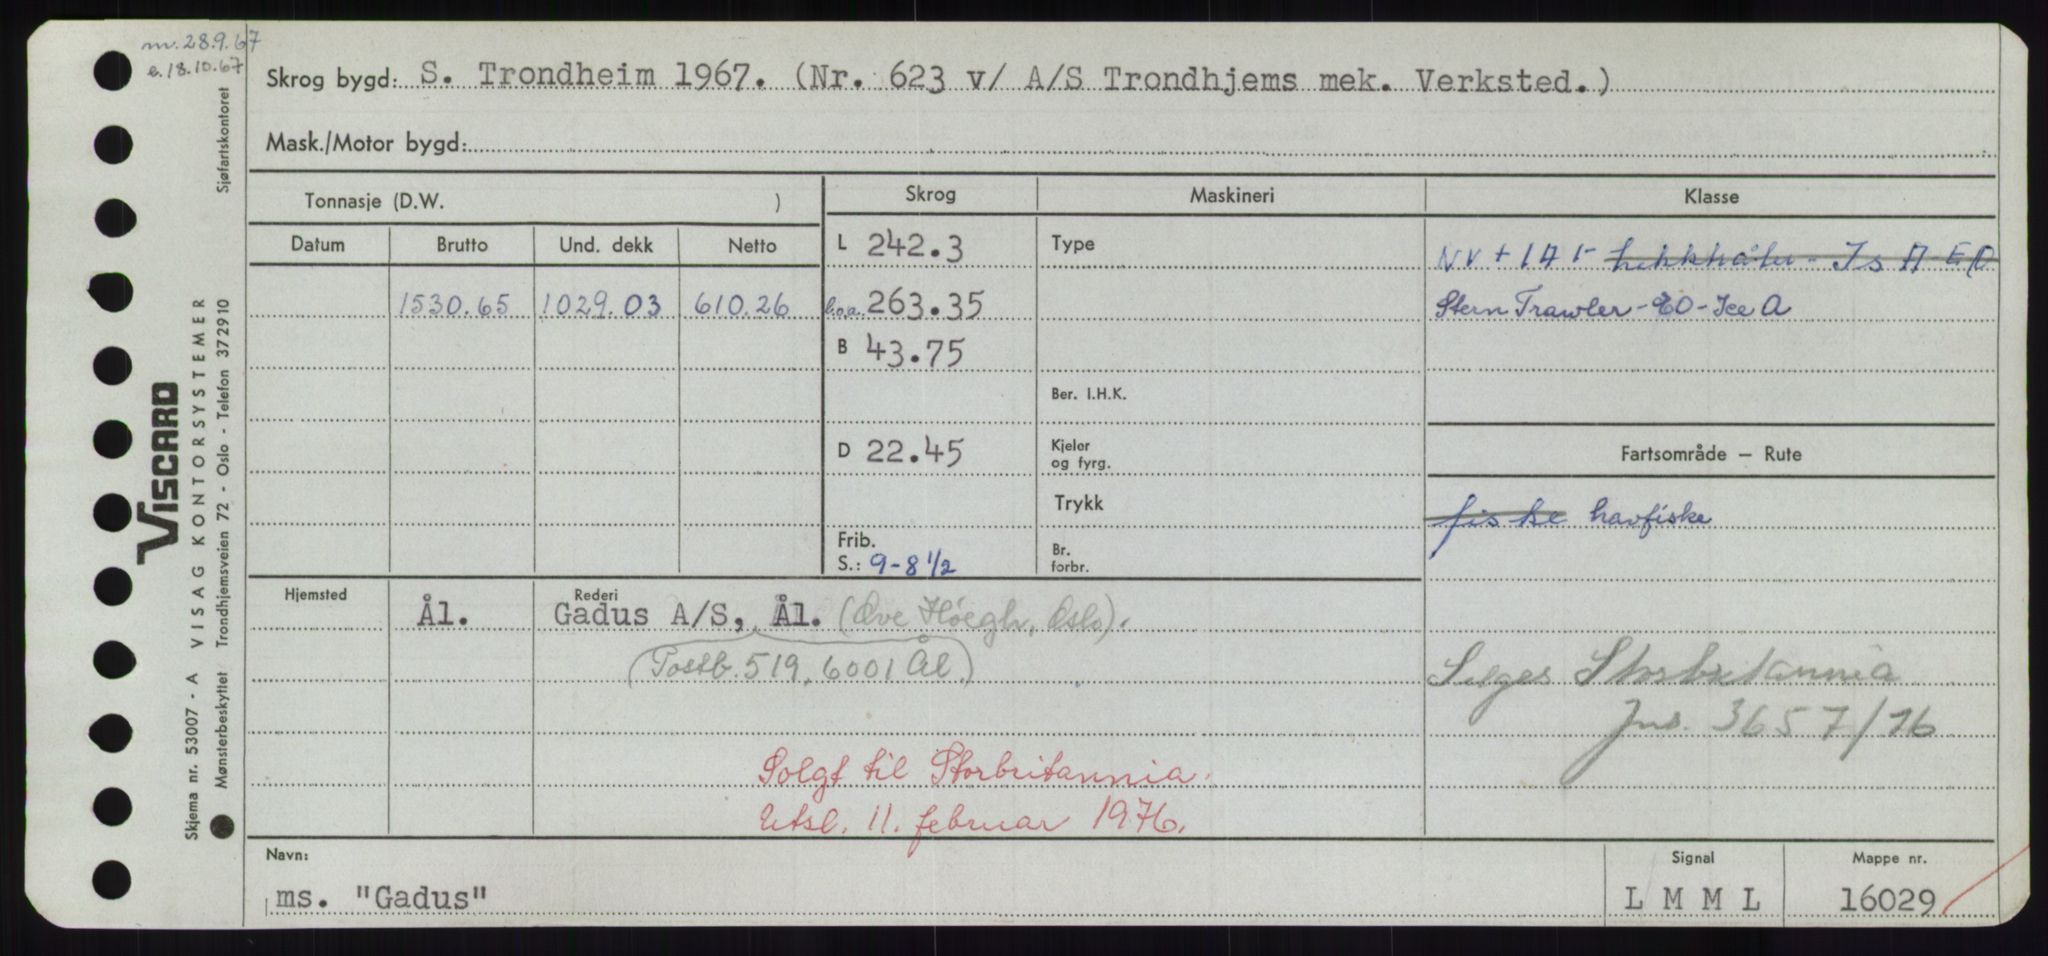 m. 28.9.67
e. 18.10.67
Skrog bygd: S. Trondheim 1967. (Nr. 623 v/ A/S Trondhjems mek. Verksted.)
Mask./Motor bygd:
Tonnasje (D.W. )
Skrog
Maskineri
Klasse
Datum Brutto Und. dekk Netto
L 242.3
Type
NV + 1A1- hekktråler - Is A - EO
1530.65 1029.03 610.26
l.o.a. 263.35
Stern Trawler - EO - Ice A
B 43.75
Ber. I.H.K.
D 22.45
Kjeler
og fyrg.
Fartsområde – Rute
Trykk
fiske havfiske
Frib.
S.: 9-8 1/2
Br.
forbr.
Hjemsted
Rederi
Ål. Gadus A/S, Ål. (Ove Høegh, Oslo).
(Postb. 519, 6001 Ål.)
Selges Storbritannia
Jnr. 3657/76
Solgt til Storbritannia.
Utsl. 11. februar 1976.
Navn:
ms. "Gadus"
Signal
L M M L
Mappe nr.
16029
Skjema nr. 53007 - A VISAG KONTORSYSTEMER
Mønsterbeskyttet Trondhjemsveien 72 - Oslo - Telefon 372910 Sjøfartskontoret
VISCARD